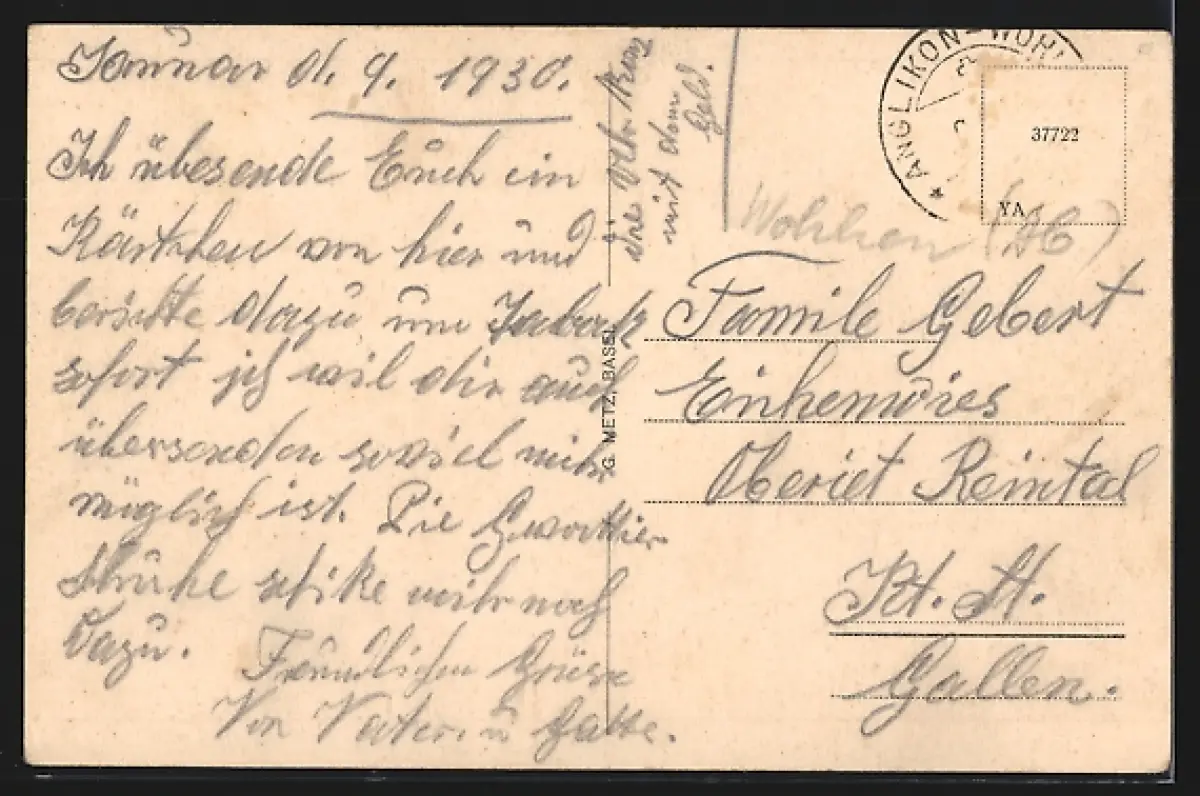 Januar d. 9. 1930.
Ich übesende Euch ein
Kärtchen von hier und
berichte dazu um Tabak
sofort ich wil dir auch
übersenden soviel mihr
möglich ist. Die
schike mihr noch
Dazu. Freundlichen Grüsse
Von Vater. u Gatte.
mit dem
Geld.
G. METZ, BASEL
* ANGLIKON-WOH
37722
YA
Wohlen (AG)
Familie Gebert
Eichenwies
Oberiet Reintal
Kt. St.
Gallen.